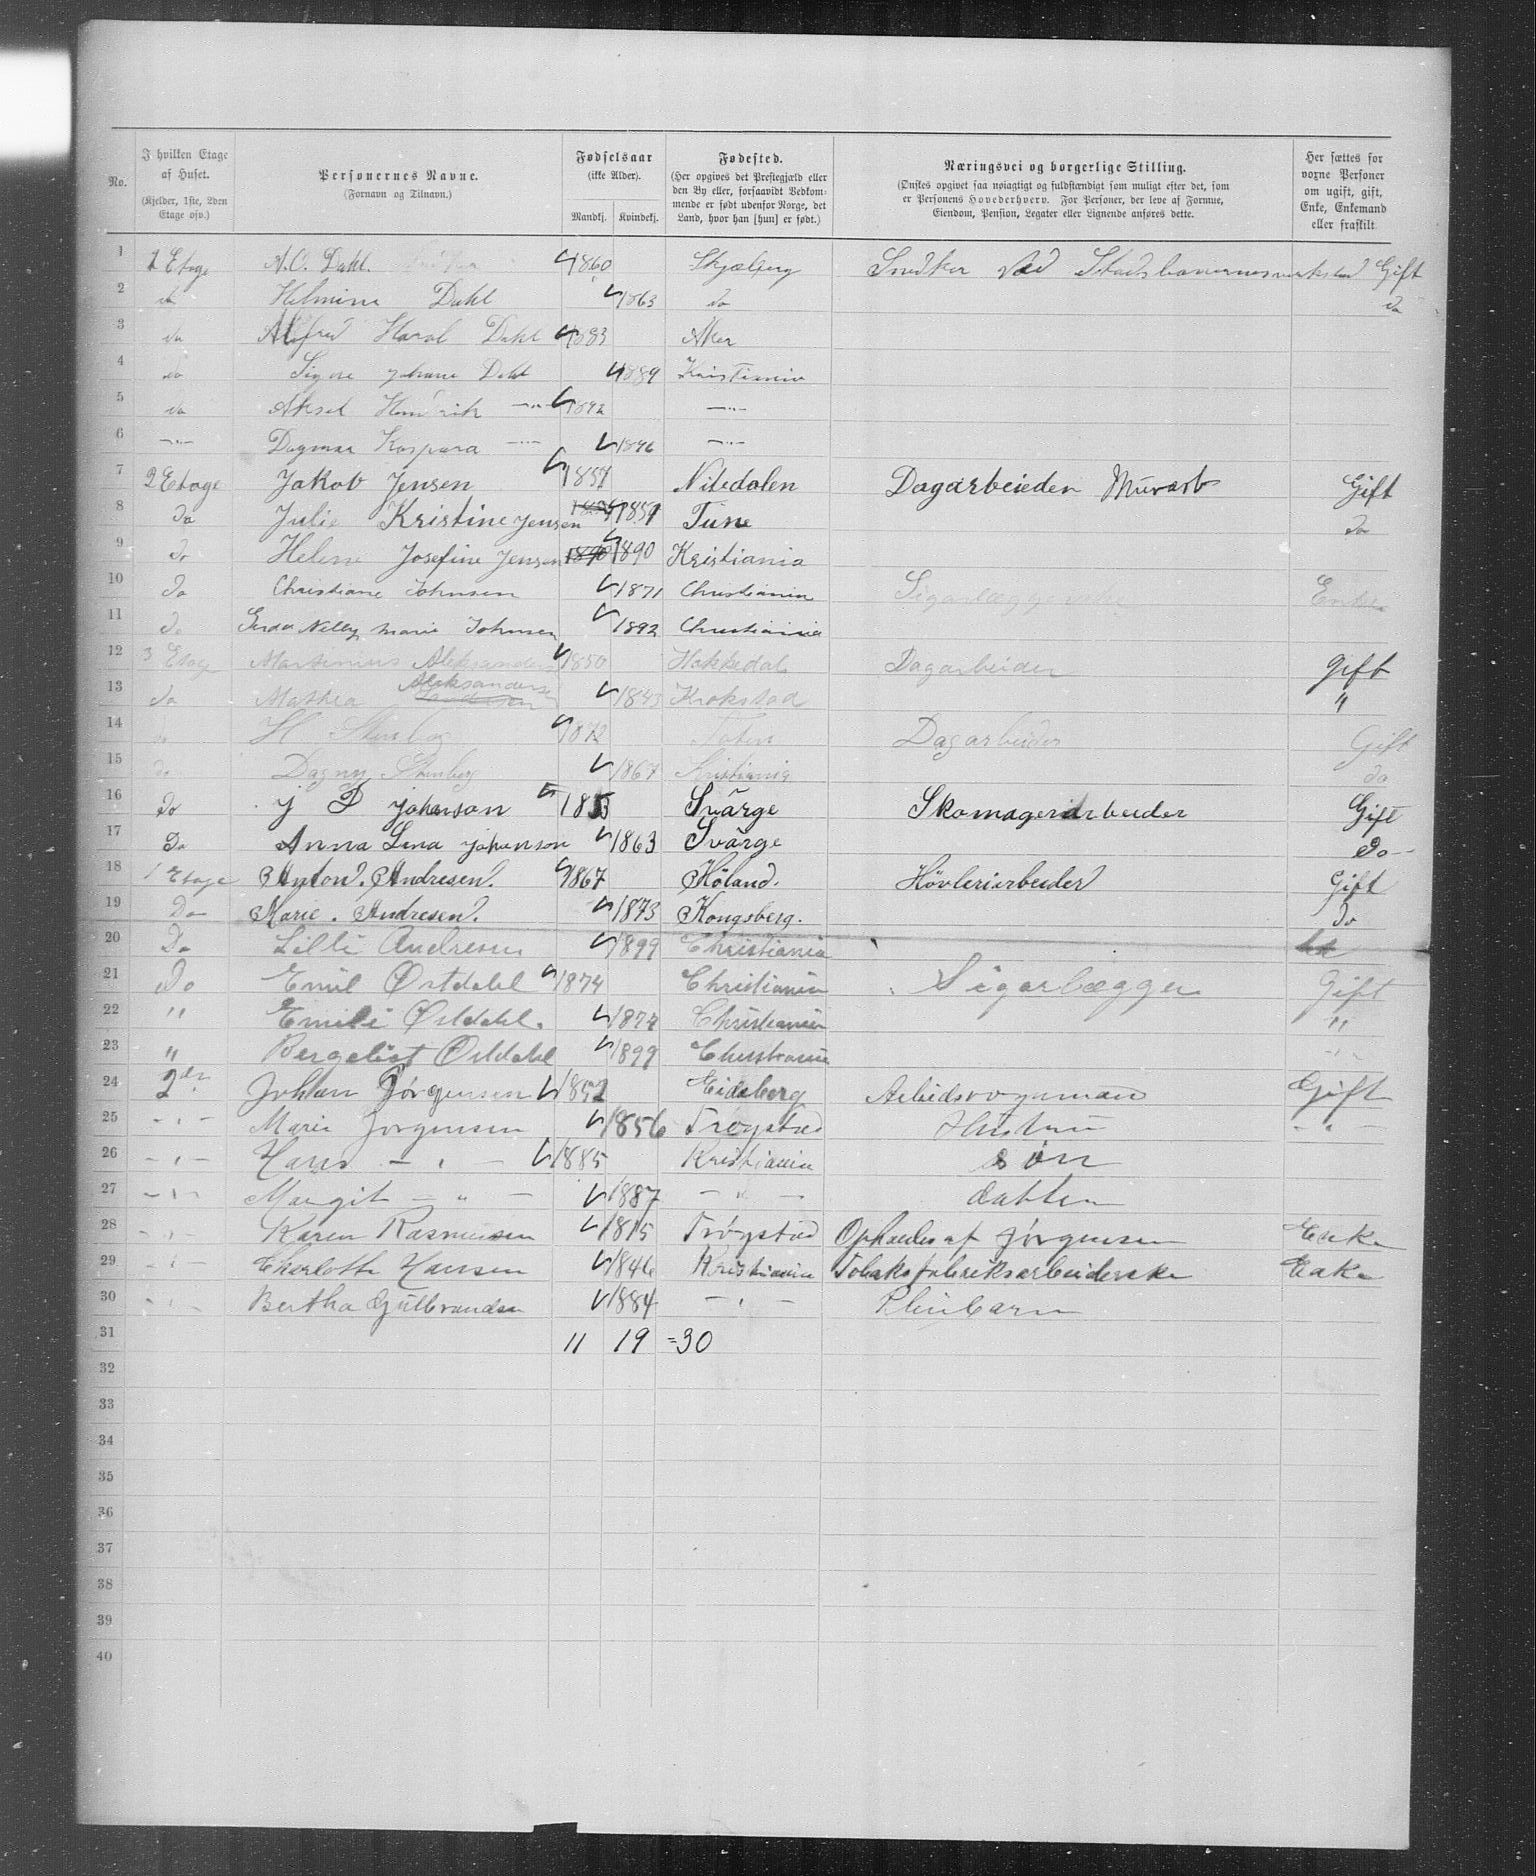 No.
I hvilken Etage af Huset.
(Kjelder, 1ste, 2den Etage osv.)
Personernes Navne.
(Fornavn og Tilnavn.)
Fødselsaar
(ikke Alder).
Mandkj. Kvindekj.
Fødested.
(Her opgives det Prestegjæld eller den By eller, forsaavidt Vedkommende er født udenfor Norge, det Land, hvor han [hun] er født.)
Næringsvei og borgerlige Stilling.
(Ønskes opgivet saa nøiagtigt og fuldstændigt som muligt efter det, som er Personens Hovederhverv. For Personer, der leve af Formue, Eiendom, Pension, Legater eller Lignende anføres dette.
Her sættes for voxne Personer om ugift, gift, Enke, Enkemand eller fraskilt
1 1 Etage A. O. Dahl. 1860 Skjeberg Snedker ved Gift
2 do Helmine Dahl 1863 do do
3 do Alfred Haral Dahl 1883 Aker
4 do Signe Johane Dahl 1889 Kristiania
5 do Aksel Hendrik —"— 1892 —"—
6 —"— Dagmar Kaspara —"— 1896 —"—
7 2 Etage Jakob Jensen 1857 Nitedalen Dagarbeider Murarb Gift
8 Do Julie Kristine Jensen 1859 Tune do
9 Do Helene Josefine Jensen 1890 1890 Kristiania
10 Do Christiane Johnsen 1871 Christiania Enke
11 Do Gerda Nelly Marie Johnsen 1892 Christiania
12 3 Etage Martinius Aleksanders 1850 Hakkedal Dagarbeider gift
13 do Mathea Aleksanderse 1843 Krokstad "
14 do H Stenberg 1872 Toten Dagarbeider Gift
15 do Dagny Stenberg 1867 Kristiania do
16 Do J P Johanson 1853 Svärge Skomageriarbeider Gift
17 Do Anna Lena Johanson 1863 Svärge Do
18 1 Etage Anton. Andresen. 1867 Höland. Hövleriarbeider Gift
19 Do Marie. Andresen. 1873 Kongsberg. Do
20 Do Lilli Andresen 1899 Christiania
21 Do Emil Østdahl 1874 Christiania Sigarlægger Gift
22 " Emili Østdahl. 1877 Christiania "
23 " Bergeliot Østdahl 1899 Christiania "
24 2den Johan Jørgensen 1852 Eidsberg Arbeidsvognmand Gift
25 -"- Marie Jørgensen 1856 Trøgstad Hustru -"-
26 -"- Hans — " — 1885 Kristiania søn
27 -"- Margit — " — 1887 — " — datter
28 -"- Karen Rasmussen 1815 Trøgstad Opholdes af Jørgensen Enke
29 -"- Charlotte Hansen 1846 Kristiania Tobaksfabriksarbeiderske Enke
30 -"- Bertha Gulbrandsen 1884 — " — Pleiebarn
31 11 19 =30
32
33
34
35
36
37
38
39
40